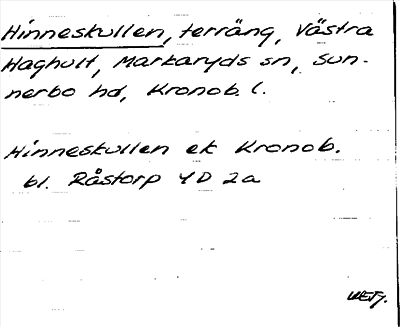 Hinneskullen, terräng, Västra
Haghult, Markaryds sn, Sun-
nerbo hd, Kronob. l.
Hinneskullen ek Kronob.
bl. Råstorp 4D 2a